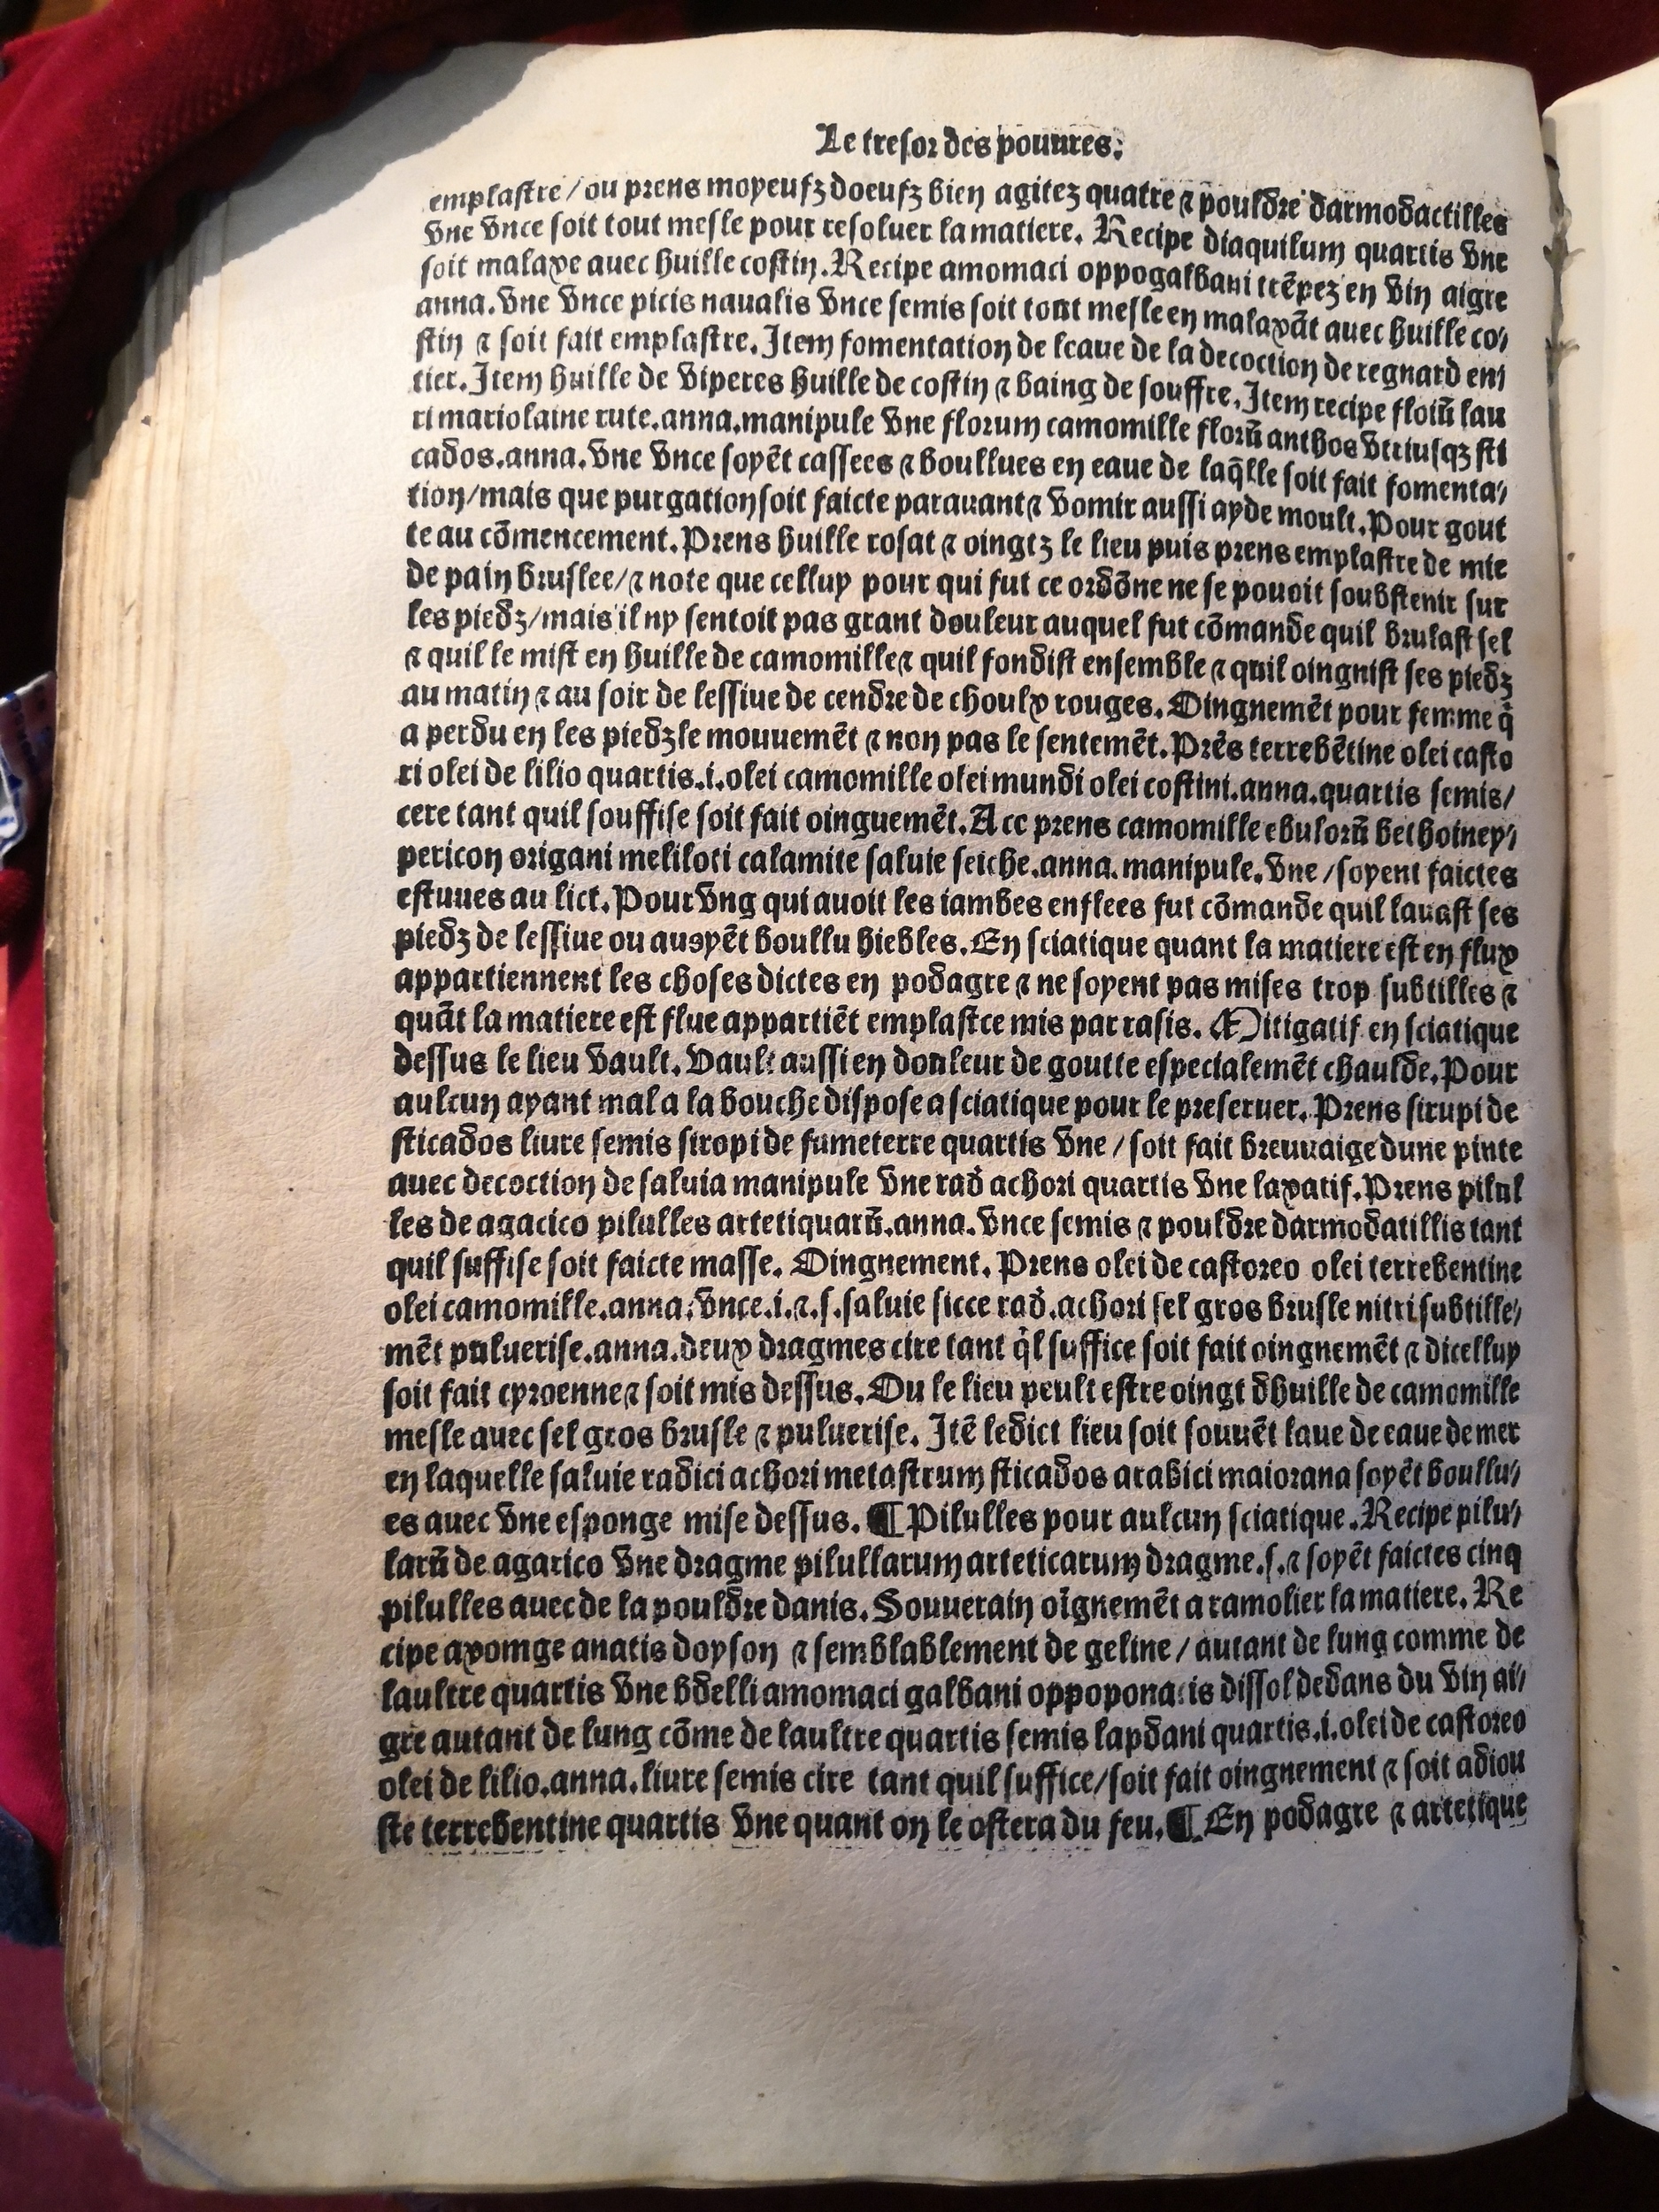 Le tresor des pouures.
emplastre/ou prens moyeufz doeufz bien agitez quatre ⁊ pouldre darmodactilles
vne vnce soit tout mesle pour resoluer la matiere. Recipe diaquilum quartis vne
soit malaxe auec huille costin. Recipe amomaci oppogalbani trẽpez en vin aigre
anna. vne vnce picis naualis vnce semis soit tout mesle en malaxãt auec huille co/
stin ⁊ soit fait emplastre. Item fomentation de leaue de la decoction de regnard en
tier. Item huille de viperes huille de costin ⁊ baing de souffre. Item recipe florũ lau
ri mariolaine rute.anna.manipule vne florum camomille florũ anthos vtriusqȝ sti
cados.anna.vne vnce soyẽt cassees ⁊ boullues en eaue de laq̃lle soit fait fomenta/
tion/mais que purgation soit faicte parauant ⁊ vomir aussi ayde moult. Pour gout
te au cõmencement. Prens huille rosat ⁊ oingtz le lieu puis prens emplastre de mie
de pain bruslee/⁊ note que celluy pour qui fut ce ordõne ne se pouoit soubstenir sur
les piedz/mais il ny sentoit pas grant douleur auquel fut cõmande quil brulast sel
⁊ quil le mist en huille de camomille ⁊ quil fondist ensemble ⁊ quil oingnist ses piedz
au matin ⁊ au soir de lessiue de cendre de choulx rouges. Oingnemẽt pour femme q̃
a perdu en les piedz le mouuemẽt ⁊ non pas le sentemẽt. Prẽs terrebẽtine olei casto
ri olei de lilio quartis.i.olei camomille olei mundi olei costini.anna.quartis semis/
cere tant quil souffise soit fait oinguemẽt. A ce prens camomille ebulorũ bethoine y/
pericon origani meliloti calamite saluie seiche.anna.manipule.vne/soyent faictes
estuues au lict. Pour vng qui auoit les iambes enflees fut cõmande quil lauast ses
piedz de lessiue ou auoyẽt boullu hiebles. En sciatique quant la matiere est en flux
appartiennent les choses dictes en podagre ⁊ ne soyent pas mises trop subtilles ⁊
quãt la matiere est flue appartiẽt emplastce mis par rasis. Mitigatif en sciatique
dessus le lieu vault. Vault aussi en douleur de goutte especialemẽt chaulde. Pour
aulcun ayant mal a la bouche dispose a sciatique pour le preseruer. Prens sirupi de
sticados liure semis siropi de fumeterre quartis vne/soit fait breuuaige dune pinte
auec decoction de saluia manipule vne rad̃ achori quartis vne laxatif. Prens pilul
les de agacico pilulles artetiquarũ.anna.vnce semis ⁊ pouldre darmodatillis tant
quil suffise soit faicte masse. Oingnement. Prens olei de castoreo olei terrebentine
olei camomille.anna.vnce.i.⁊.s.saluie sicce rad̃.achori sel gros brusle nitri subtille/
mẽt puluerise.anna.deux dragmes cire tant q̃l suffice soit fait oingnemẽt ⁊ dicelluy
soit fait cyroenne ⁊ soit mis dessus. Ou le lieu peult estre oingt dhuille de camomille
mesle auec sel gros brusle ⁊ puluerise. Itẽ ledict lieu soit souuẽt laue de eaue de mer
en laquelle saluie radici achori metastrum sticados arabici maiorana soyẽt boullu/
es auec vne esponge mise dessus. ¶ Pilulles pour aulcun sciatique. Recipe pilu/
larũ de agarico vne dragme pilullarum arteticarum dragme.s.⁊ soyẽt faictes cinq
pilulles auec de la pouldre danis. Souuerain oĩgnemẽt a ramolier la matiere. Re
cipe axomge anatis doyson ⁊ semblablement de geline/autant de lung comme de
laultre quartis vne bdelli amomaci galbani oppoponacis dissol dedans du vin ai/
gre autant de lung cõme de laultre quartis semis lapdani quartis.i.olei de castoreo
olei de lilio.anna.liure semis cire tant quil suffice/soit fait oingnement ⁊ soit adiou
ste terrebentine quartis vne quant on le ostera du feu. ¶ En podagre ⁊ artetique